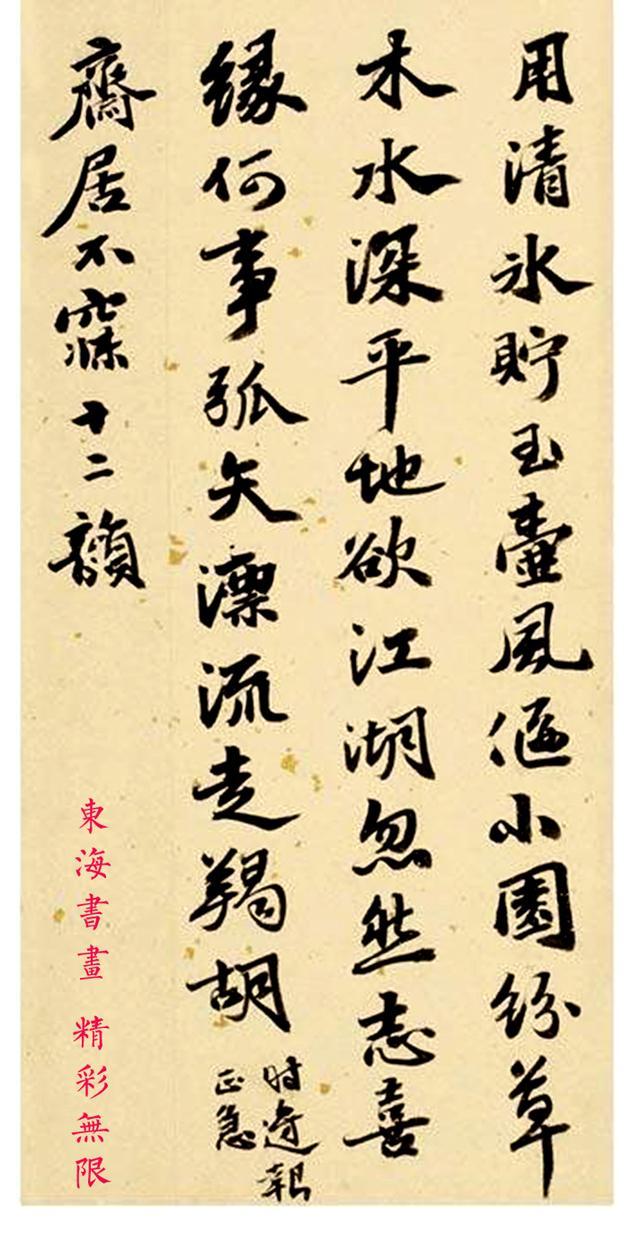 用清氷貯玉壺風傴小園紛草
木水深平地欲江湖忽然志喜
緣何事弧矢漂流走羯胡
时邊報
正急
齋居不寐十二韻
東海書畫 精彩無限